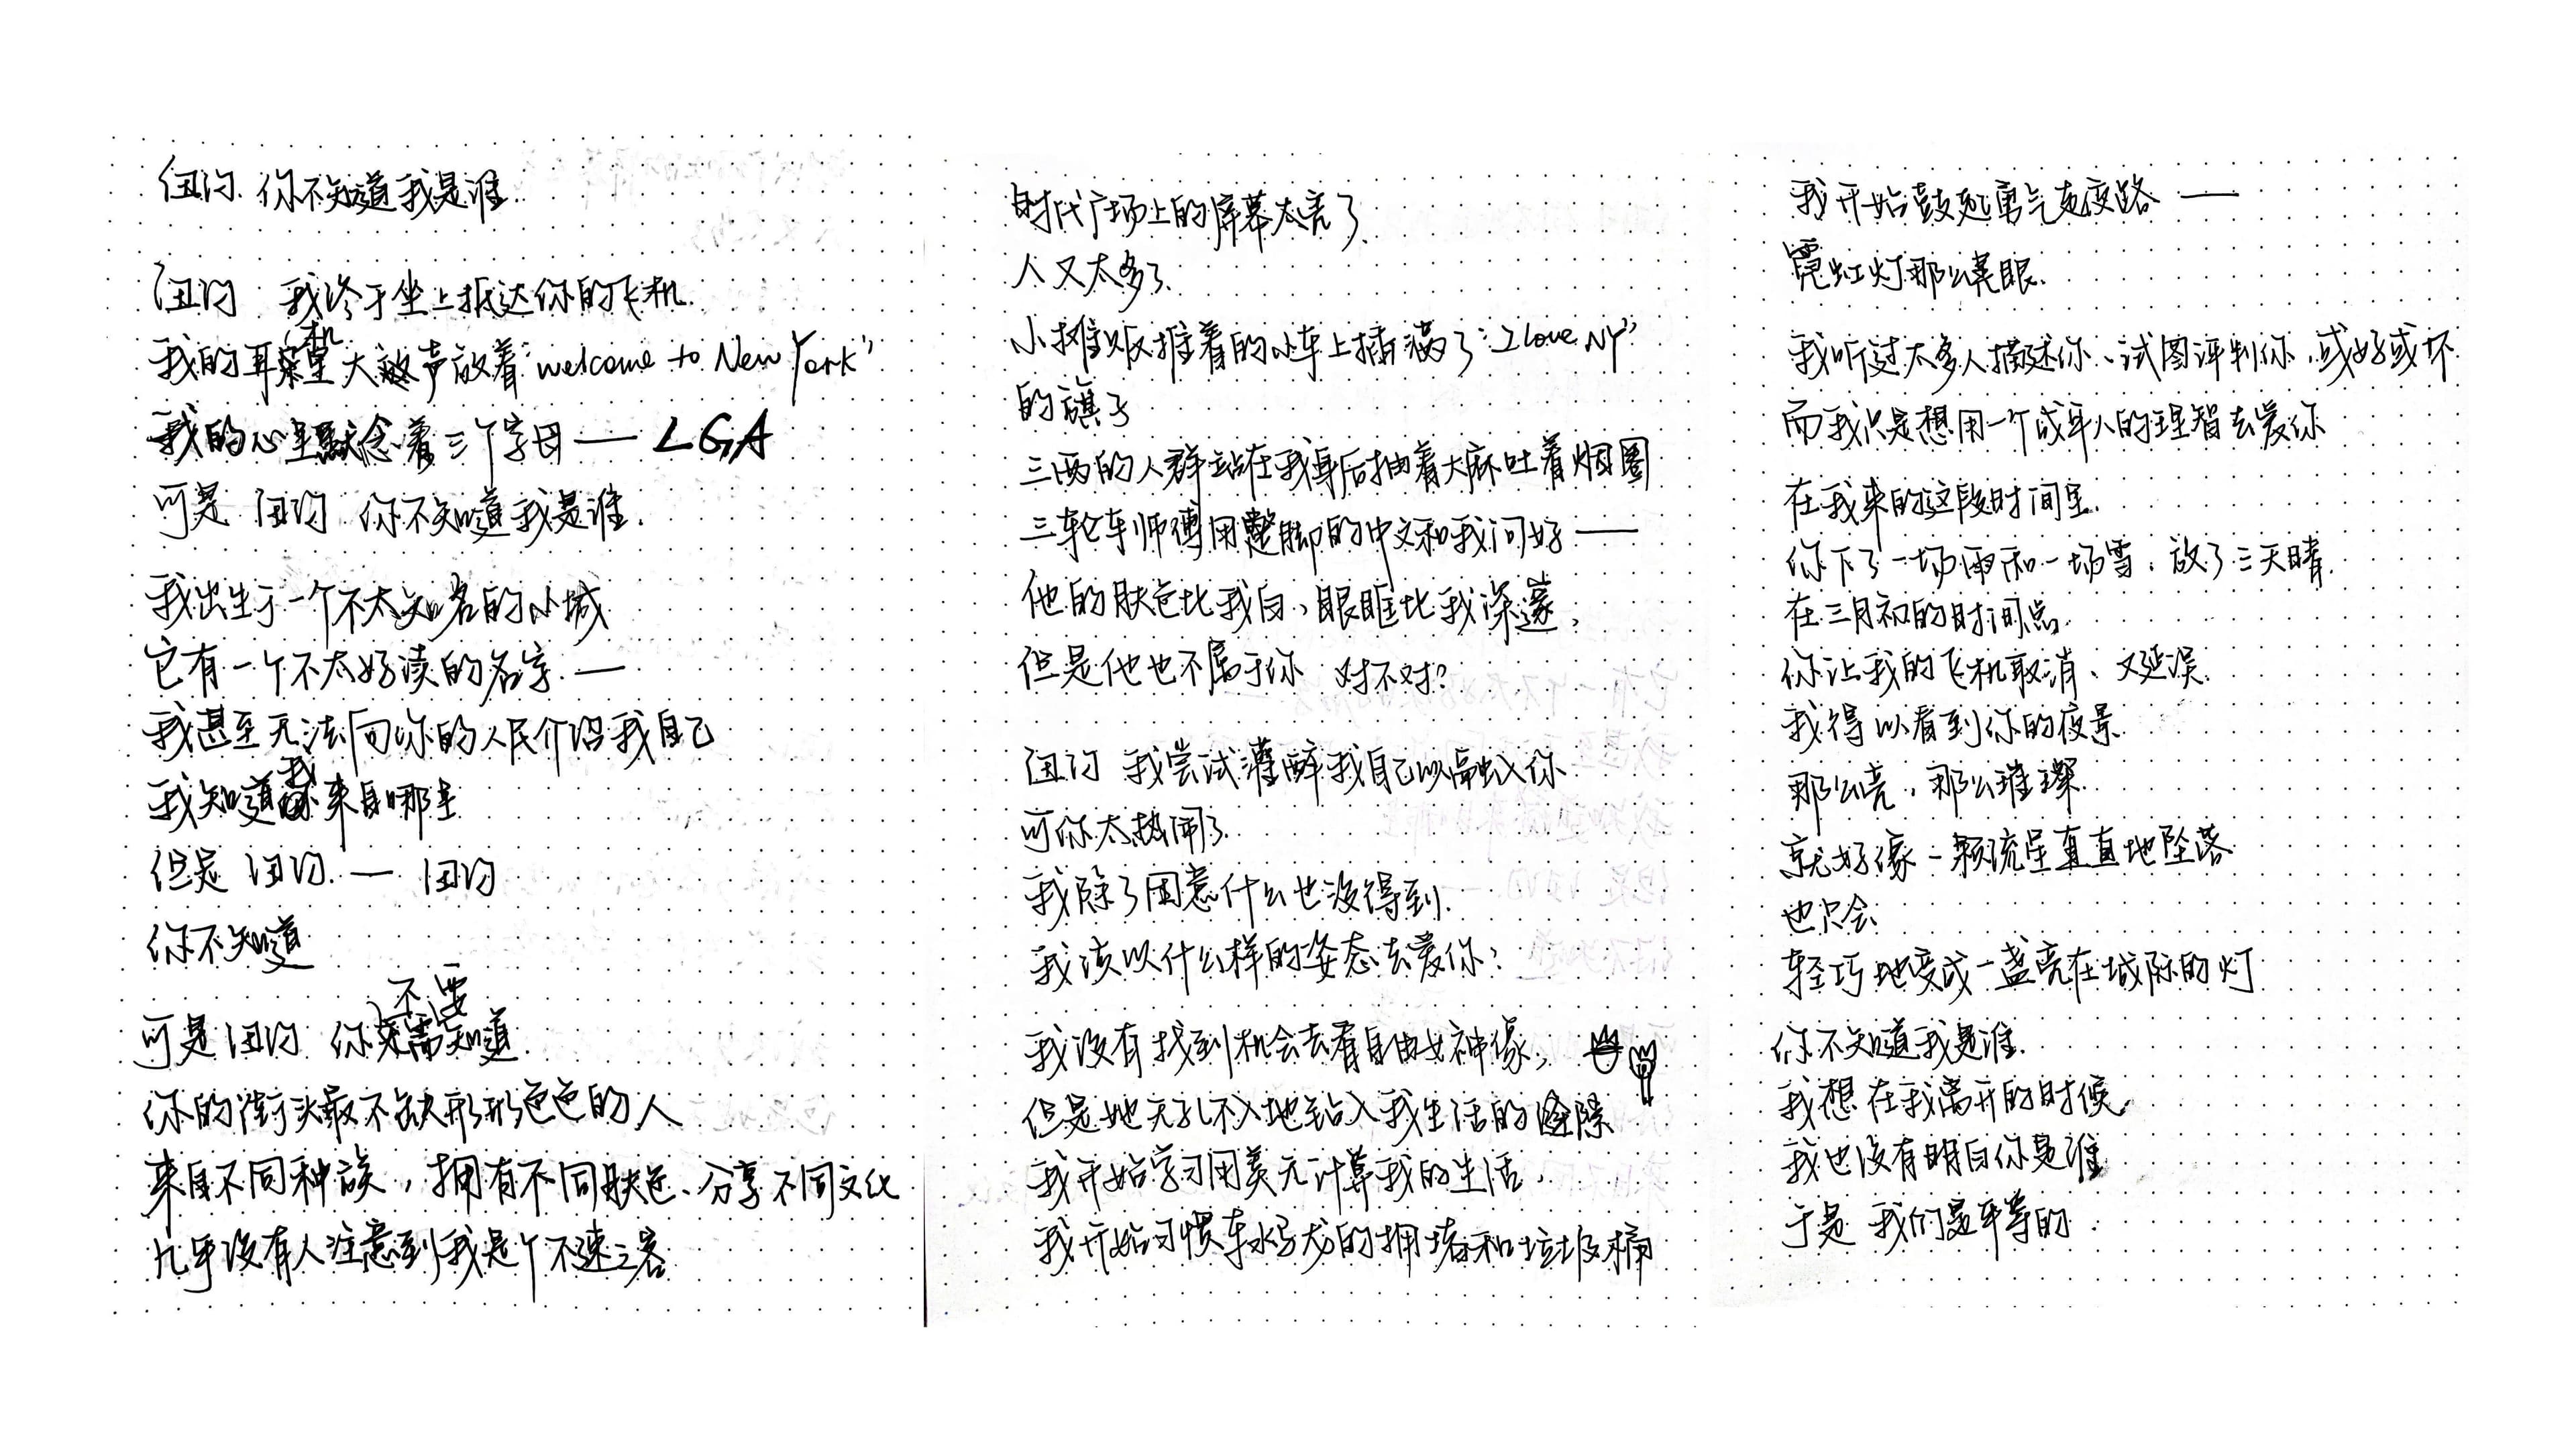 纽约 你不知道我是谁
纽约 我终于坐上抵达你的飞机
我的耳机里大声放着"welcome to New York"
我的心里默念着三个字母——LGA
可是 纽约 你不知道我是谁.
我出生于一个不太知名的小城
它有一个不太好读的名字——
我甚至无法向你的人民介绍我自己
我知道我来自哪里
但是 纽约——纽约
你不知道
可是纽约 你不需要知道
你的街头最不缺形形色色的人
来自不同种族，拥有不同肤色、分享不同文化
几乎没有人注意到我是个不速之客
时代广场上的屏幕太亮了
人又太多了
小摊贩推着的小车上插满了"I love NY"
的旗子
三两的人群站在我身后抽着大麻吐着烟圈
三轮车师傅用蹩脚的中文和我问好——
他的肤色比我白，眼眶比我深邃，
但是他也不属于你 对不对？
纽约 我尝试灌醉我自己以融入你
可你太热闹了
我除了困意什么也没得到.
我该以什么样的姿态去爱你？
我没有找到机会去看自由女神像，
但是她无孔不入地钻入我生活的缝隙
我开始学习用美元计算我的生活，
我开始习惯车水马龙的拥堵和垃圾桶
我开始鼓起勇气走夜路——
霓虹灯那么晃眼.
我听过太多人描述你、试图评判你，或好或坏
而我只是想用一个成年人的理智去爱你
在我来的这段时间里.
你下了一场雨和一场雪，放了三天晴.
在三月初的时间点.
你让我的飞机取消、又延误.
我得以看到你的夜景
那么亮，那么璀璨.
就好像一颗流星直直地坠落
也只会
轻巧地变成一盏亮在城际的灯
你不知道我是谁.
我想在我离开的时候
我也没有明白你是谁
于是 我们是平等的.